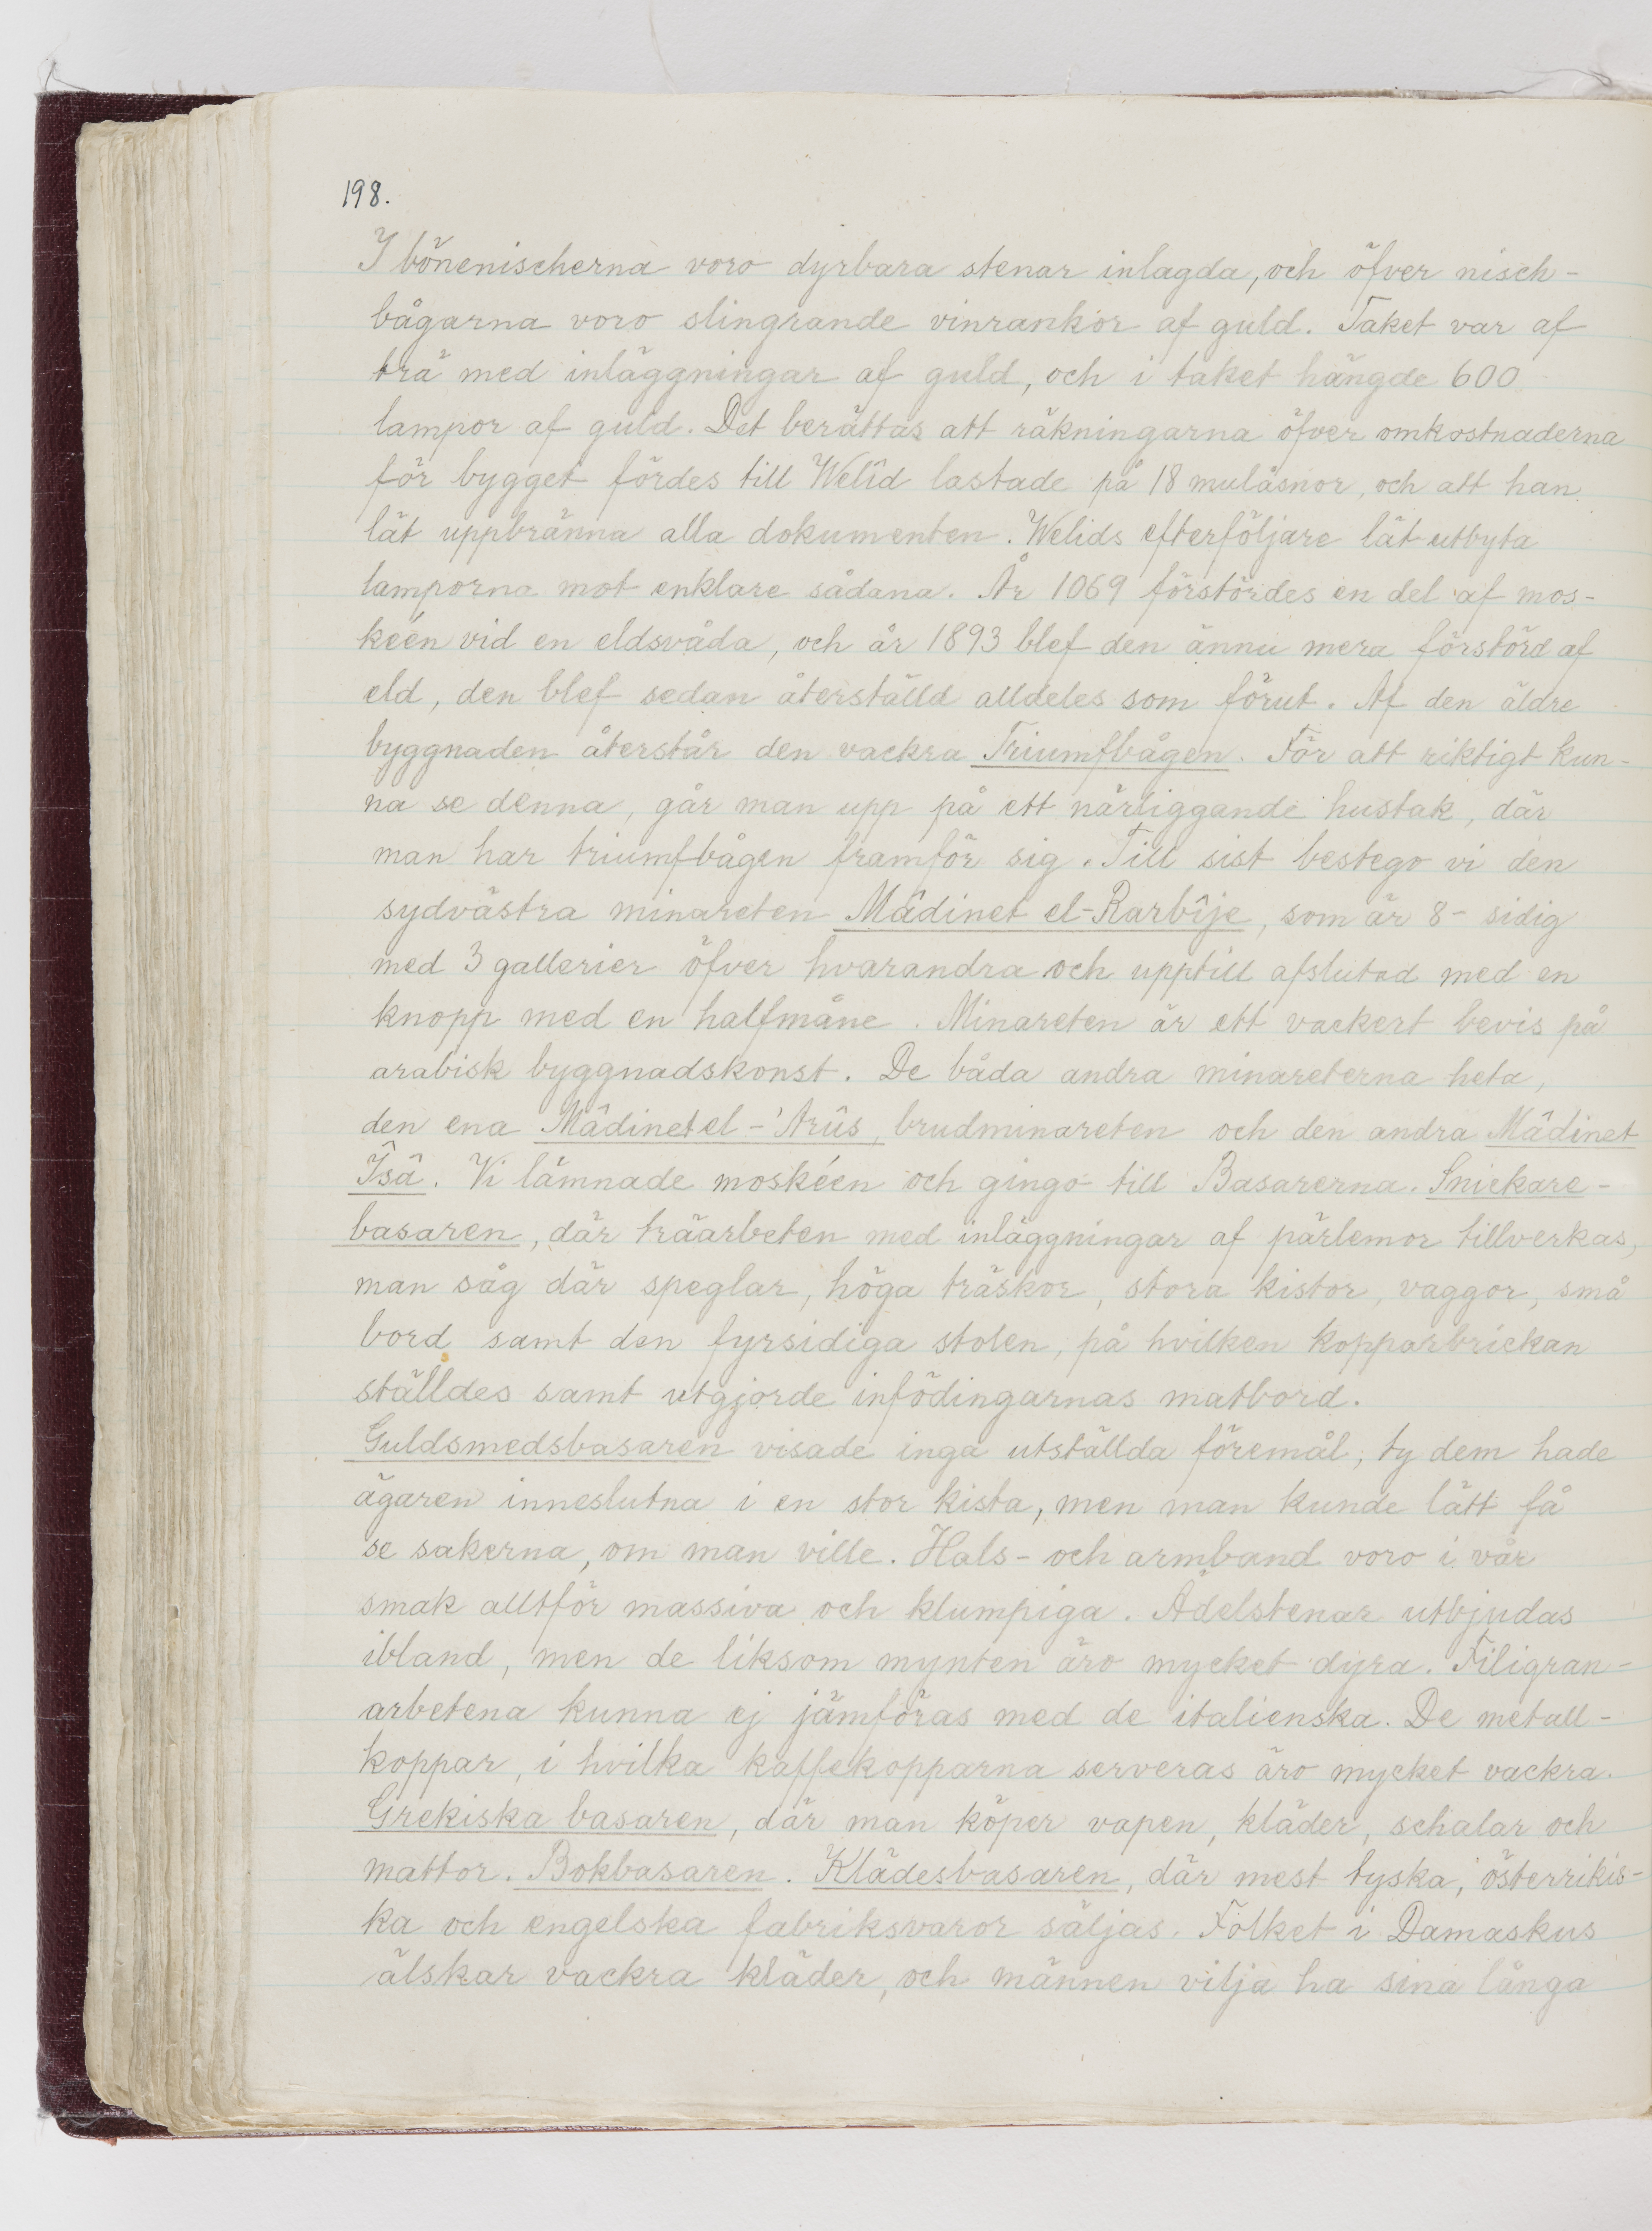 198.
I bönenischerna voro dyrbara stenar inlagda, och öfver nisch-
bågarna voro slingrande vinrankor af guld. Taket var af
trä med inläggningar af guld, och i taket hängde 600
lampor af guld. Det berättas att räkningarna öfver omkostnaderna
för bygget fördes till Welîd lastade på 18 mulåsnor, och att han
lät uppbränna alla dokumenten. Welids efterföljare lät utbyta
lamporna mot enklare sådana. År 1069 förstördes en del af mos-
kéen vid en eldsvåda, och år 1893 blef den ännu mera förstörd af
eld, den blef sedan återställd alldeles som förut. Af den äldre
byggnaden återstår den vackra Triumfbågen. För att riktigt kun-
na se denna, går man upp på ett närliggande hustak, där
man har triumfbågen framför sig. Till sist bestego vi den
sydvästra minareten Mâdinet el-Rarbîje, som är 8-sidig
med 3 gallerier öfver hvarandra och upptill afslutad med en
knopp med en halfmåne. Minareten är ett vackert bevis på
arabisk byggnadskonst. De båda andra minareterna heta,
den ena Mâdinet el-'Arûs, brudminareten och den andra Mâdinet
Îsâ. Vi lämnade moskéen och gingo till Basarerna. Snickare-
basaren, där träarbeten med inläggningar af pärlemor tillverkas,
man såg där speglar, höga träskor, stora kistor, vaggor, små
bord samt den fyrsidiga stolen, på hvilken kopparbrickan
ställdes samt utgjorde infödingarnas matbord.
Guldsmedsbasaren visade inga utställda föremål, ty dem hade
ägaren inneslutna i en stor kista, men man kunde lätt få
se sakerna, om man ville. Hals- och armband voro i vår
smak alltför massiva och klumpiga. Ädelstenar utbjudas
ibland, men de liksom mynten äro mycket dyra. Filigran-
arbetena kunna ej jämföras med de italienska. De metall-
koppar, i hvilka kaffekopparna serveras äro mycket vackra.
Grekiska basaren, där man köper vapen, kläder, schalar och
mattor. Bokbasaren. Klädesbasaren, där mest tyska, österrikis-
ka och engelska fabriksvaror säljas. Folket i Damaskus
älskar vackra kläder, och männen vilja ha sina långa